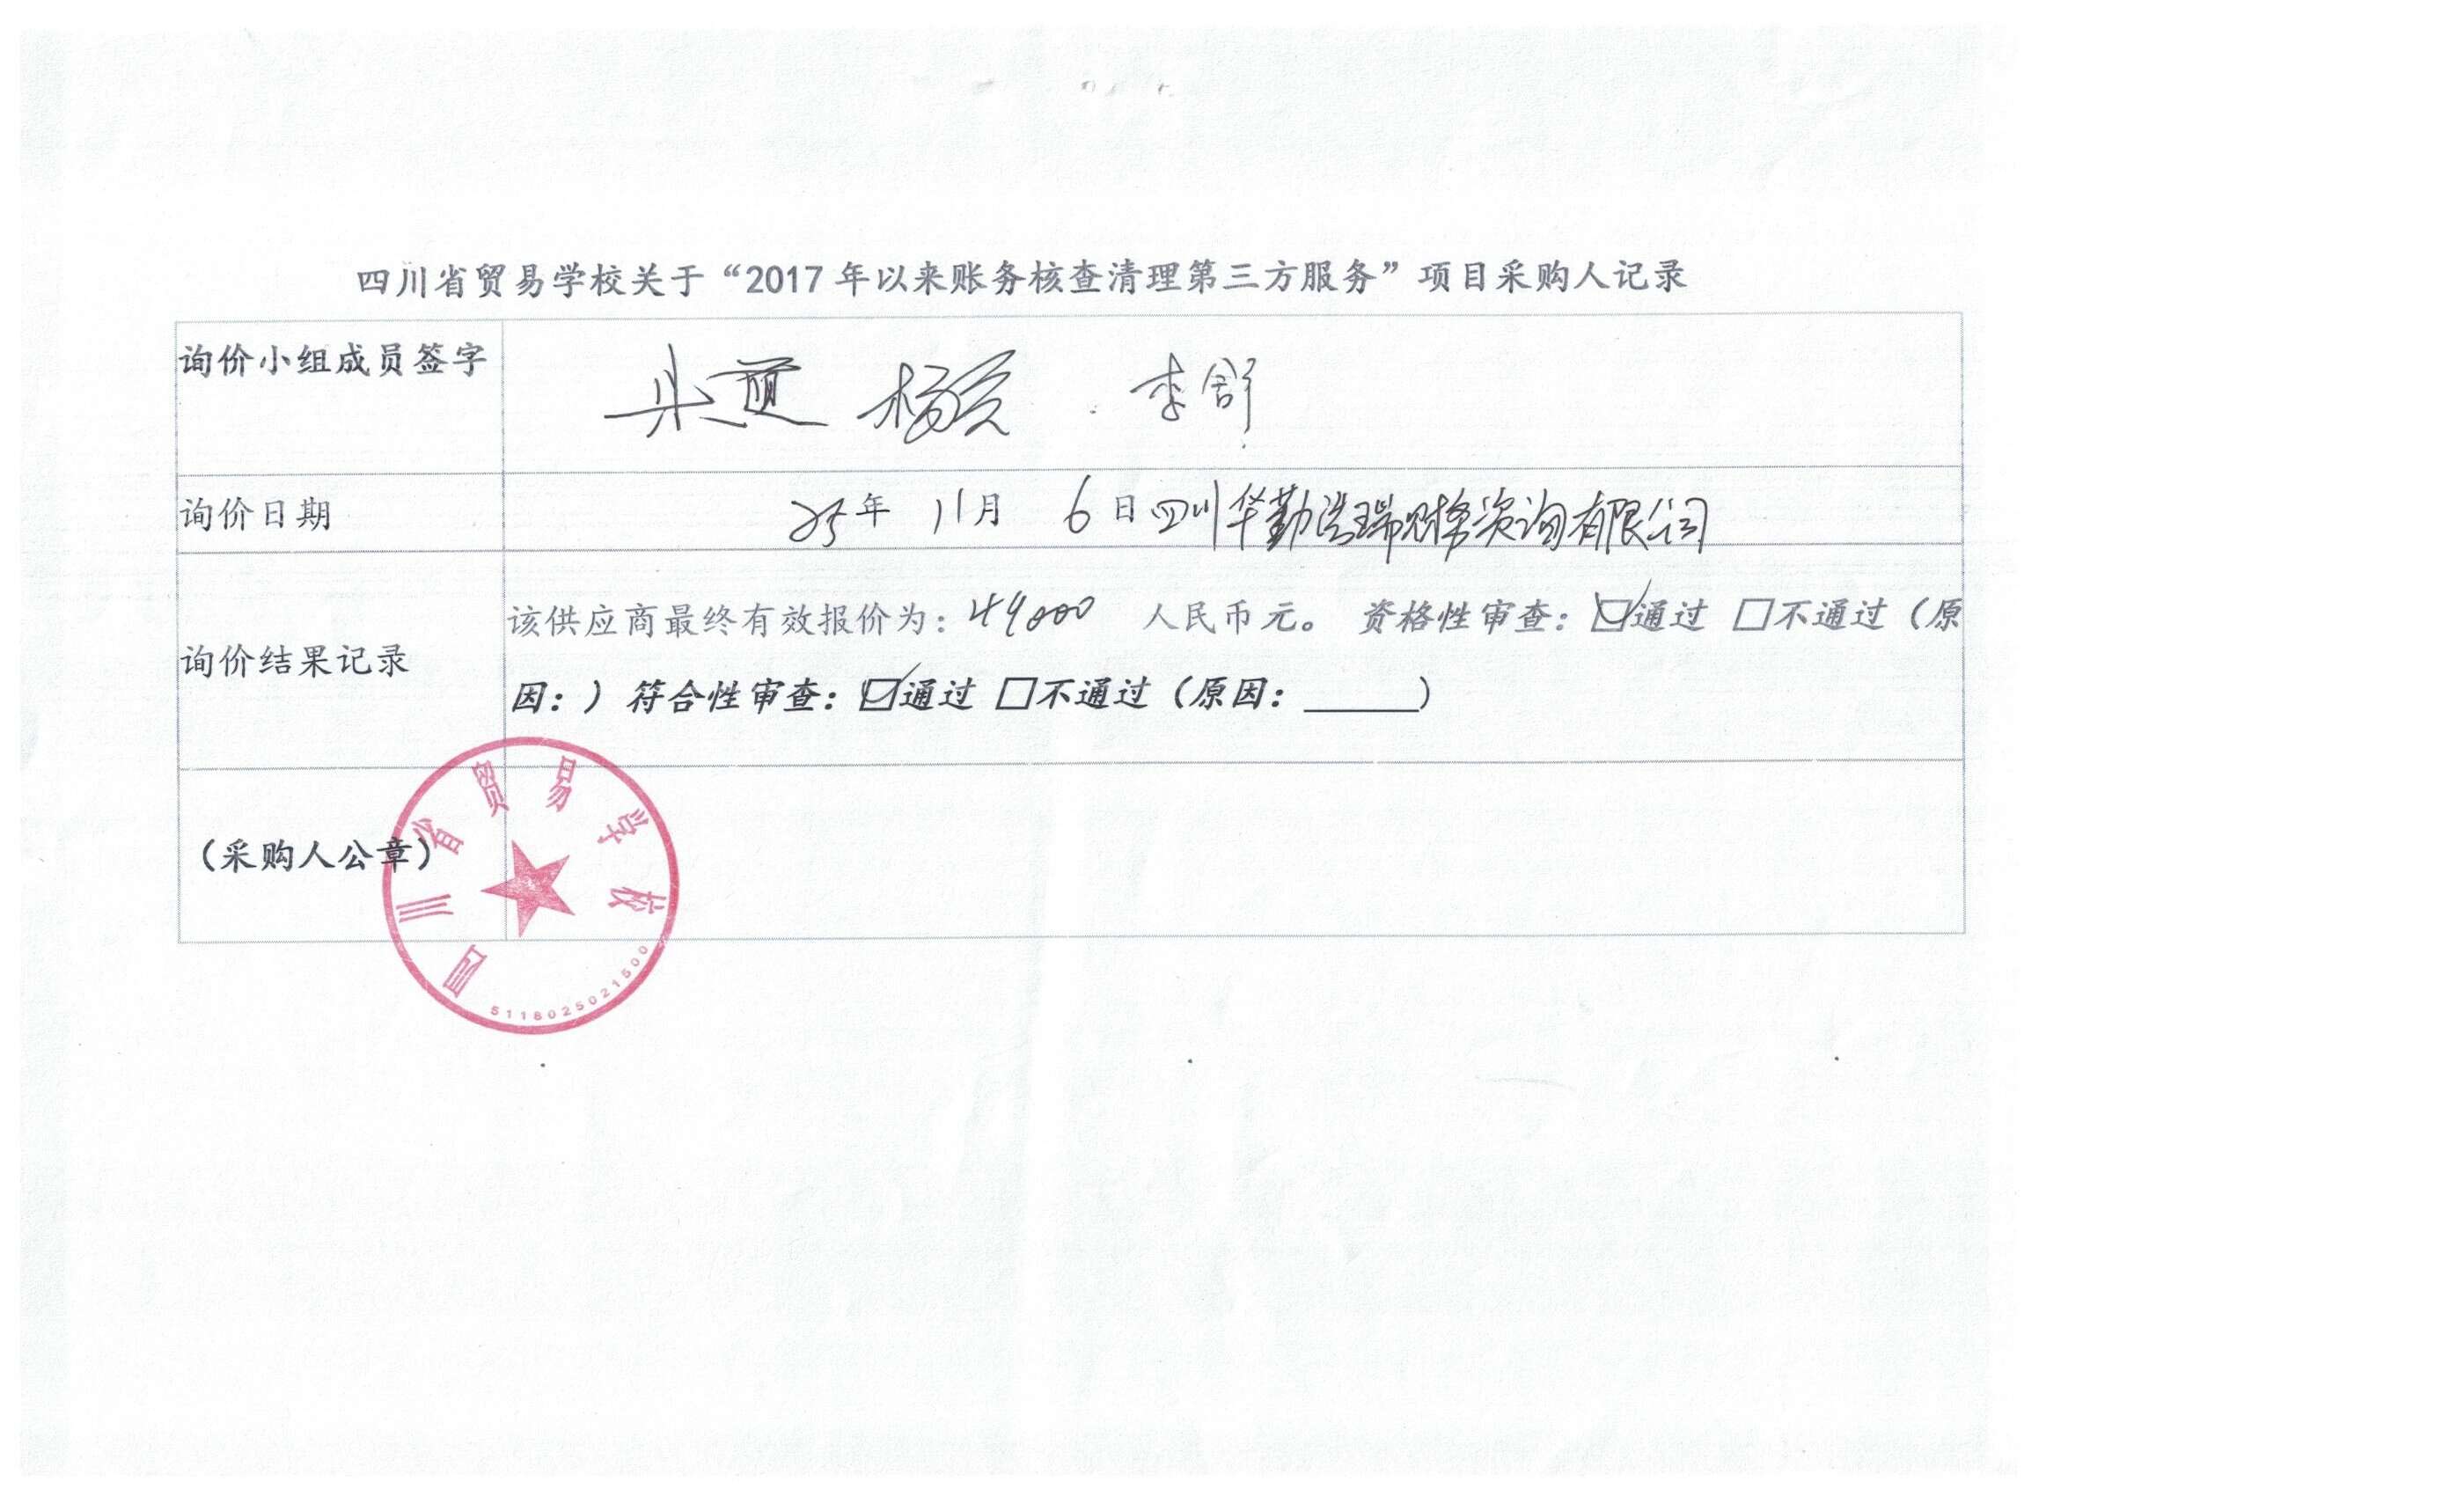 四川省贸易学校关于“2017年以来账务核查清理第三方服务”项目采购人记录
询价小组成员签字
杨 李舒
询价日期
25年 11月 6日 四川华勤浩瑞财务咨询有限公司
询价结果记录
该供应商最终有效报价为：49000 人民币元。 资格性审查：☑通过 □不通过（原
因：）符合性审查：☑通过 □不通过（原因：______）
（采购人公章）
四川省贸易学校
5118025021500